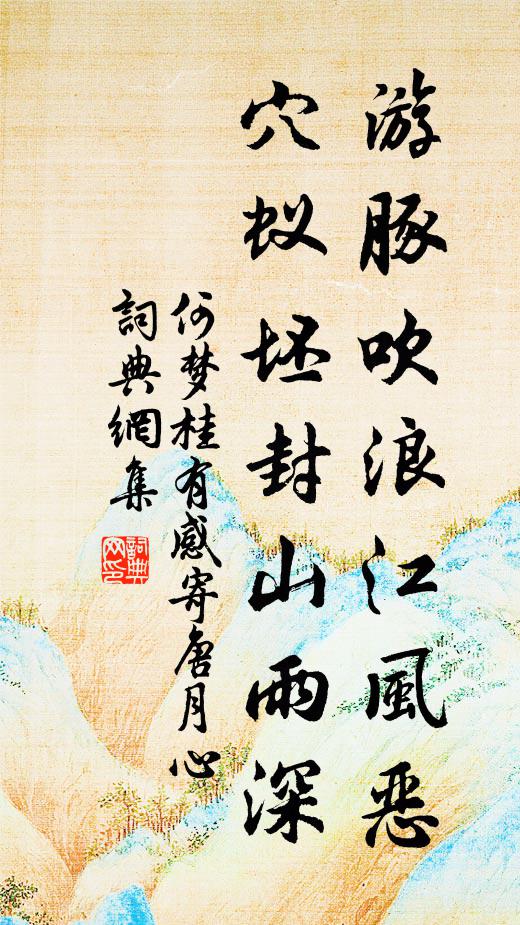 游豚吹浪江風恶
穴蚁坯封山雨深
何梦桂有感寄唐月心
詞典網集
詞典
网印